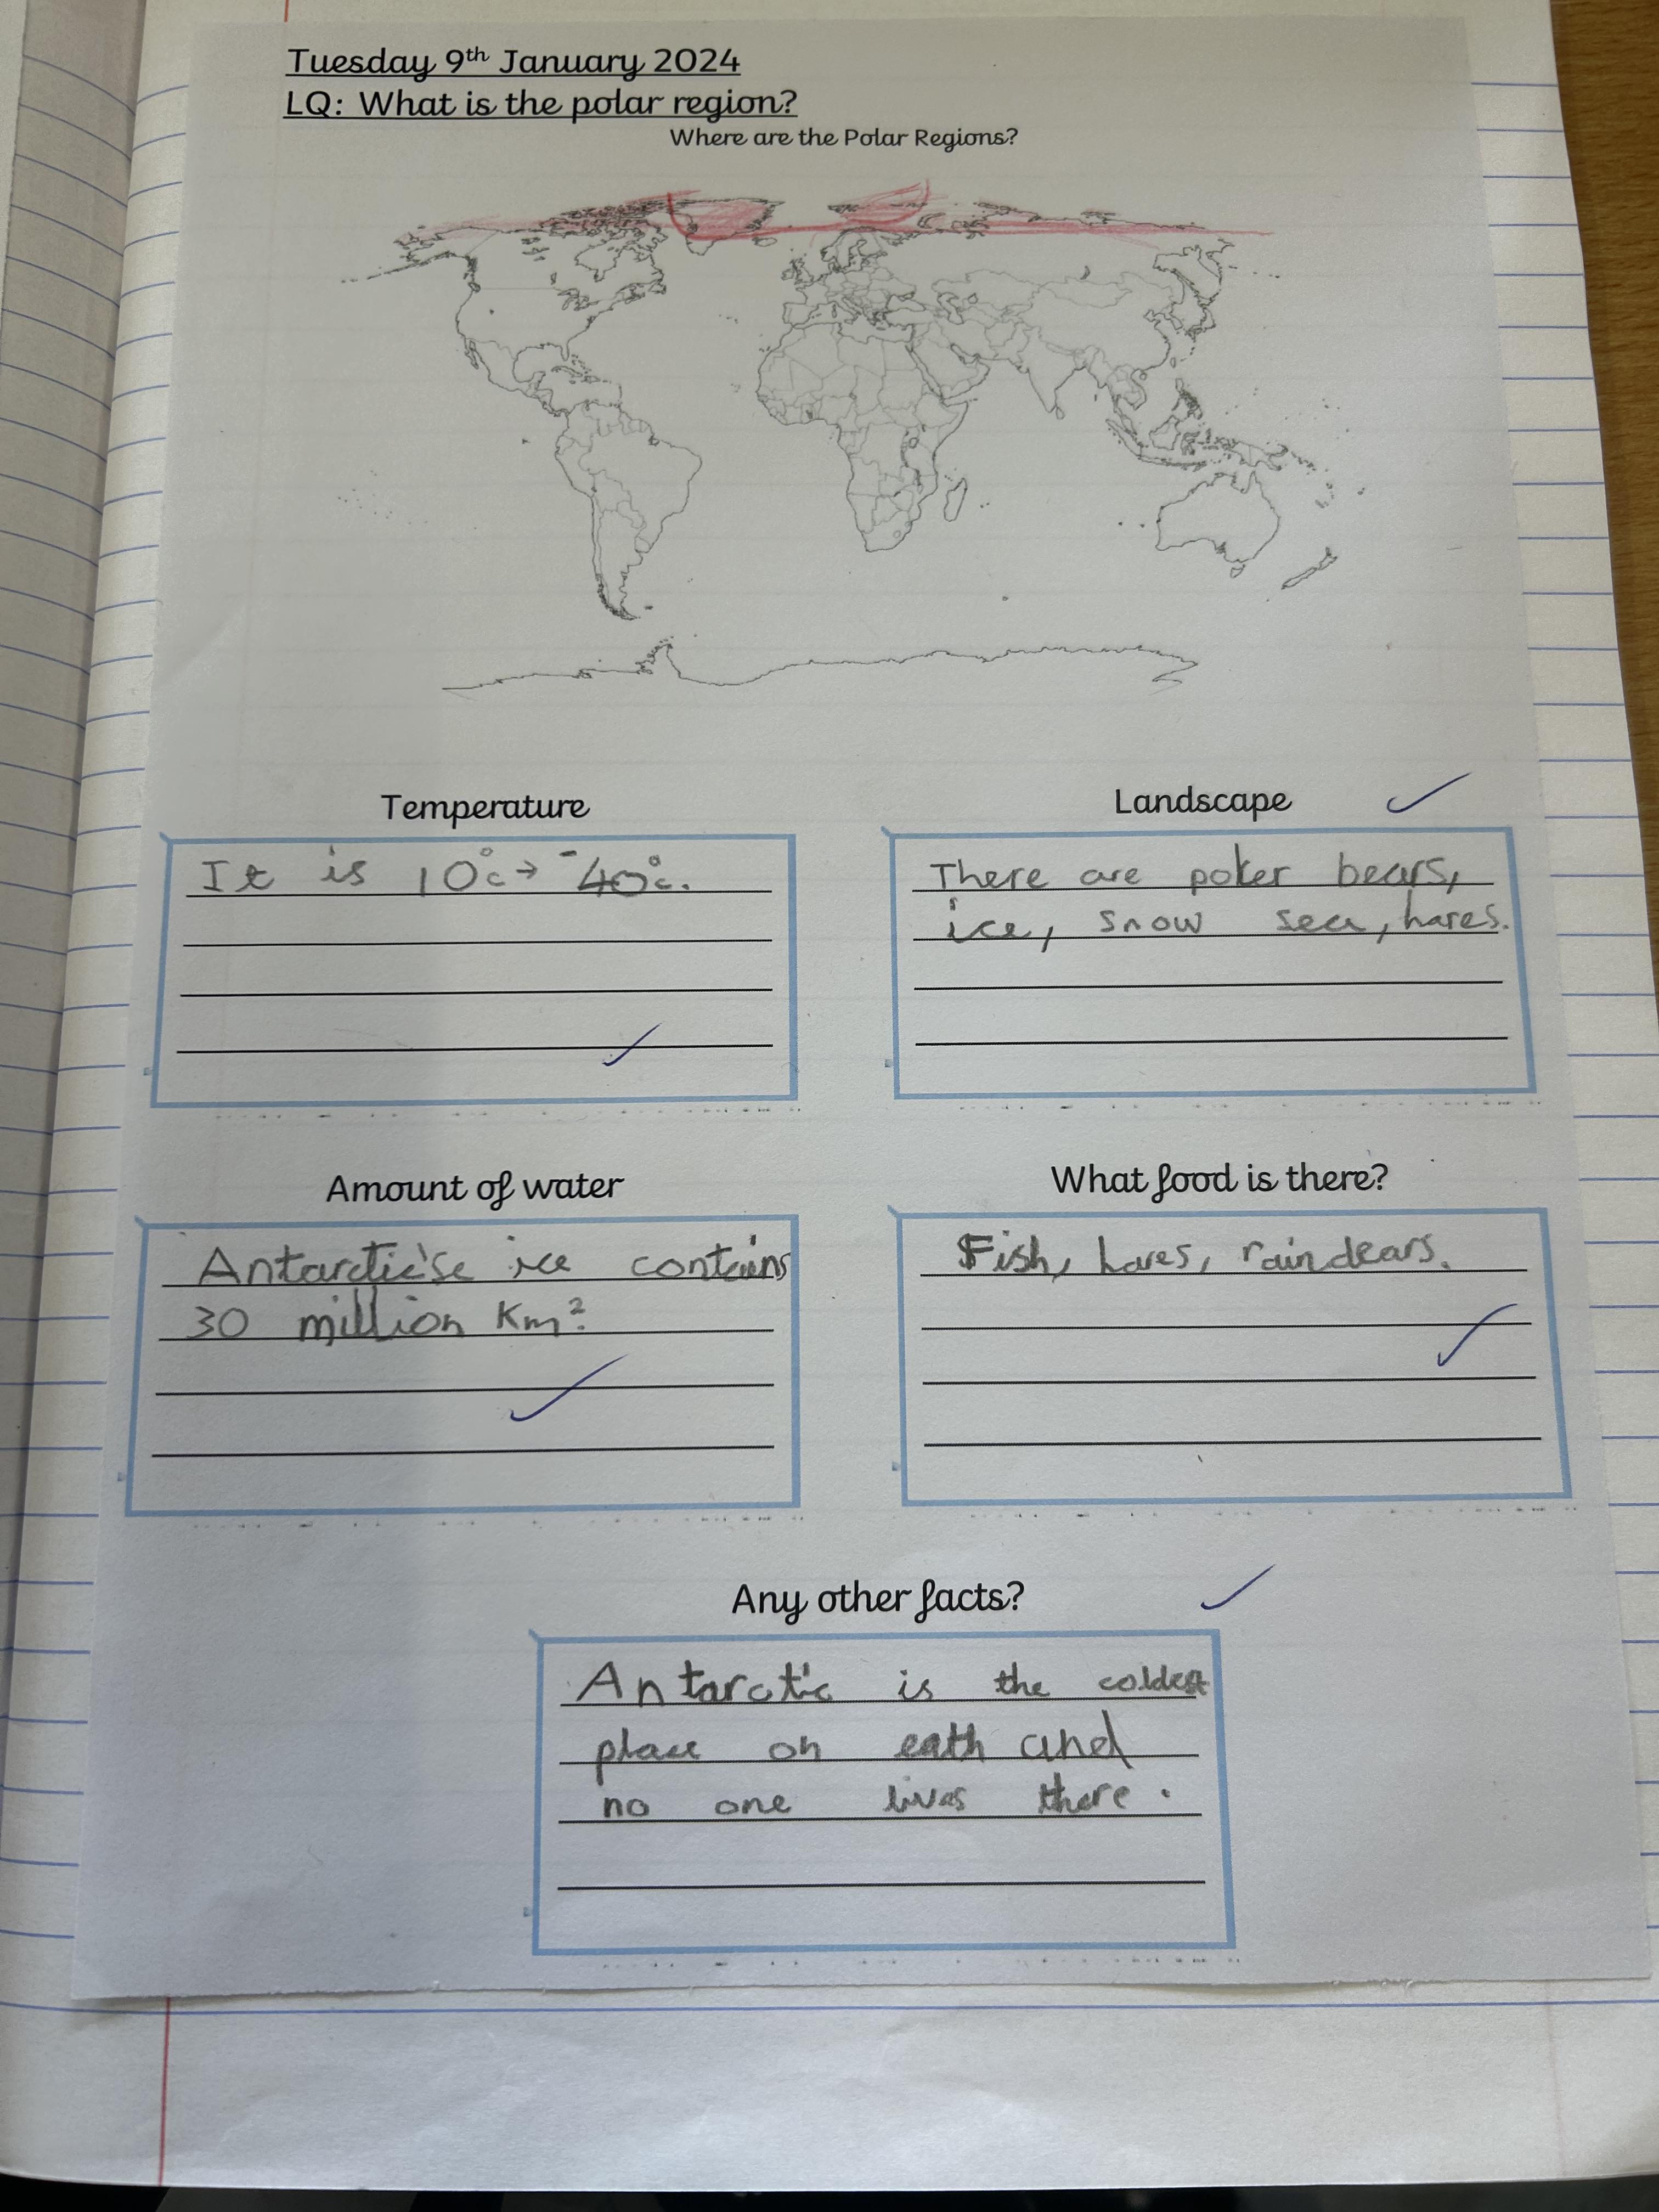 Tuesday 9th January 2024
LQ: What is the polar region?
Where are the Polar Regions?
Temperature
It is 10°c → -40°c.
Landscape
There are poler bears,
ice, snow sea, hares.
Amount of water
Antarctic'se ice contains
30 million Km².
What food is there?
Fish, hares, raindears.
Any other facts?
Antarctic is the coldest
place on eath and
no one lives there.